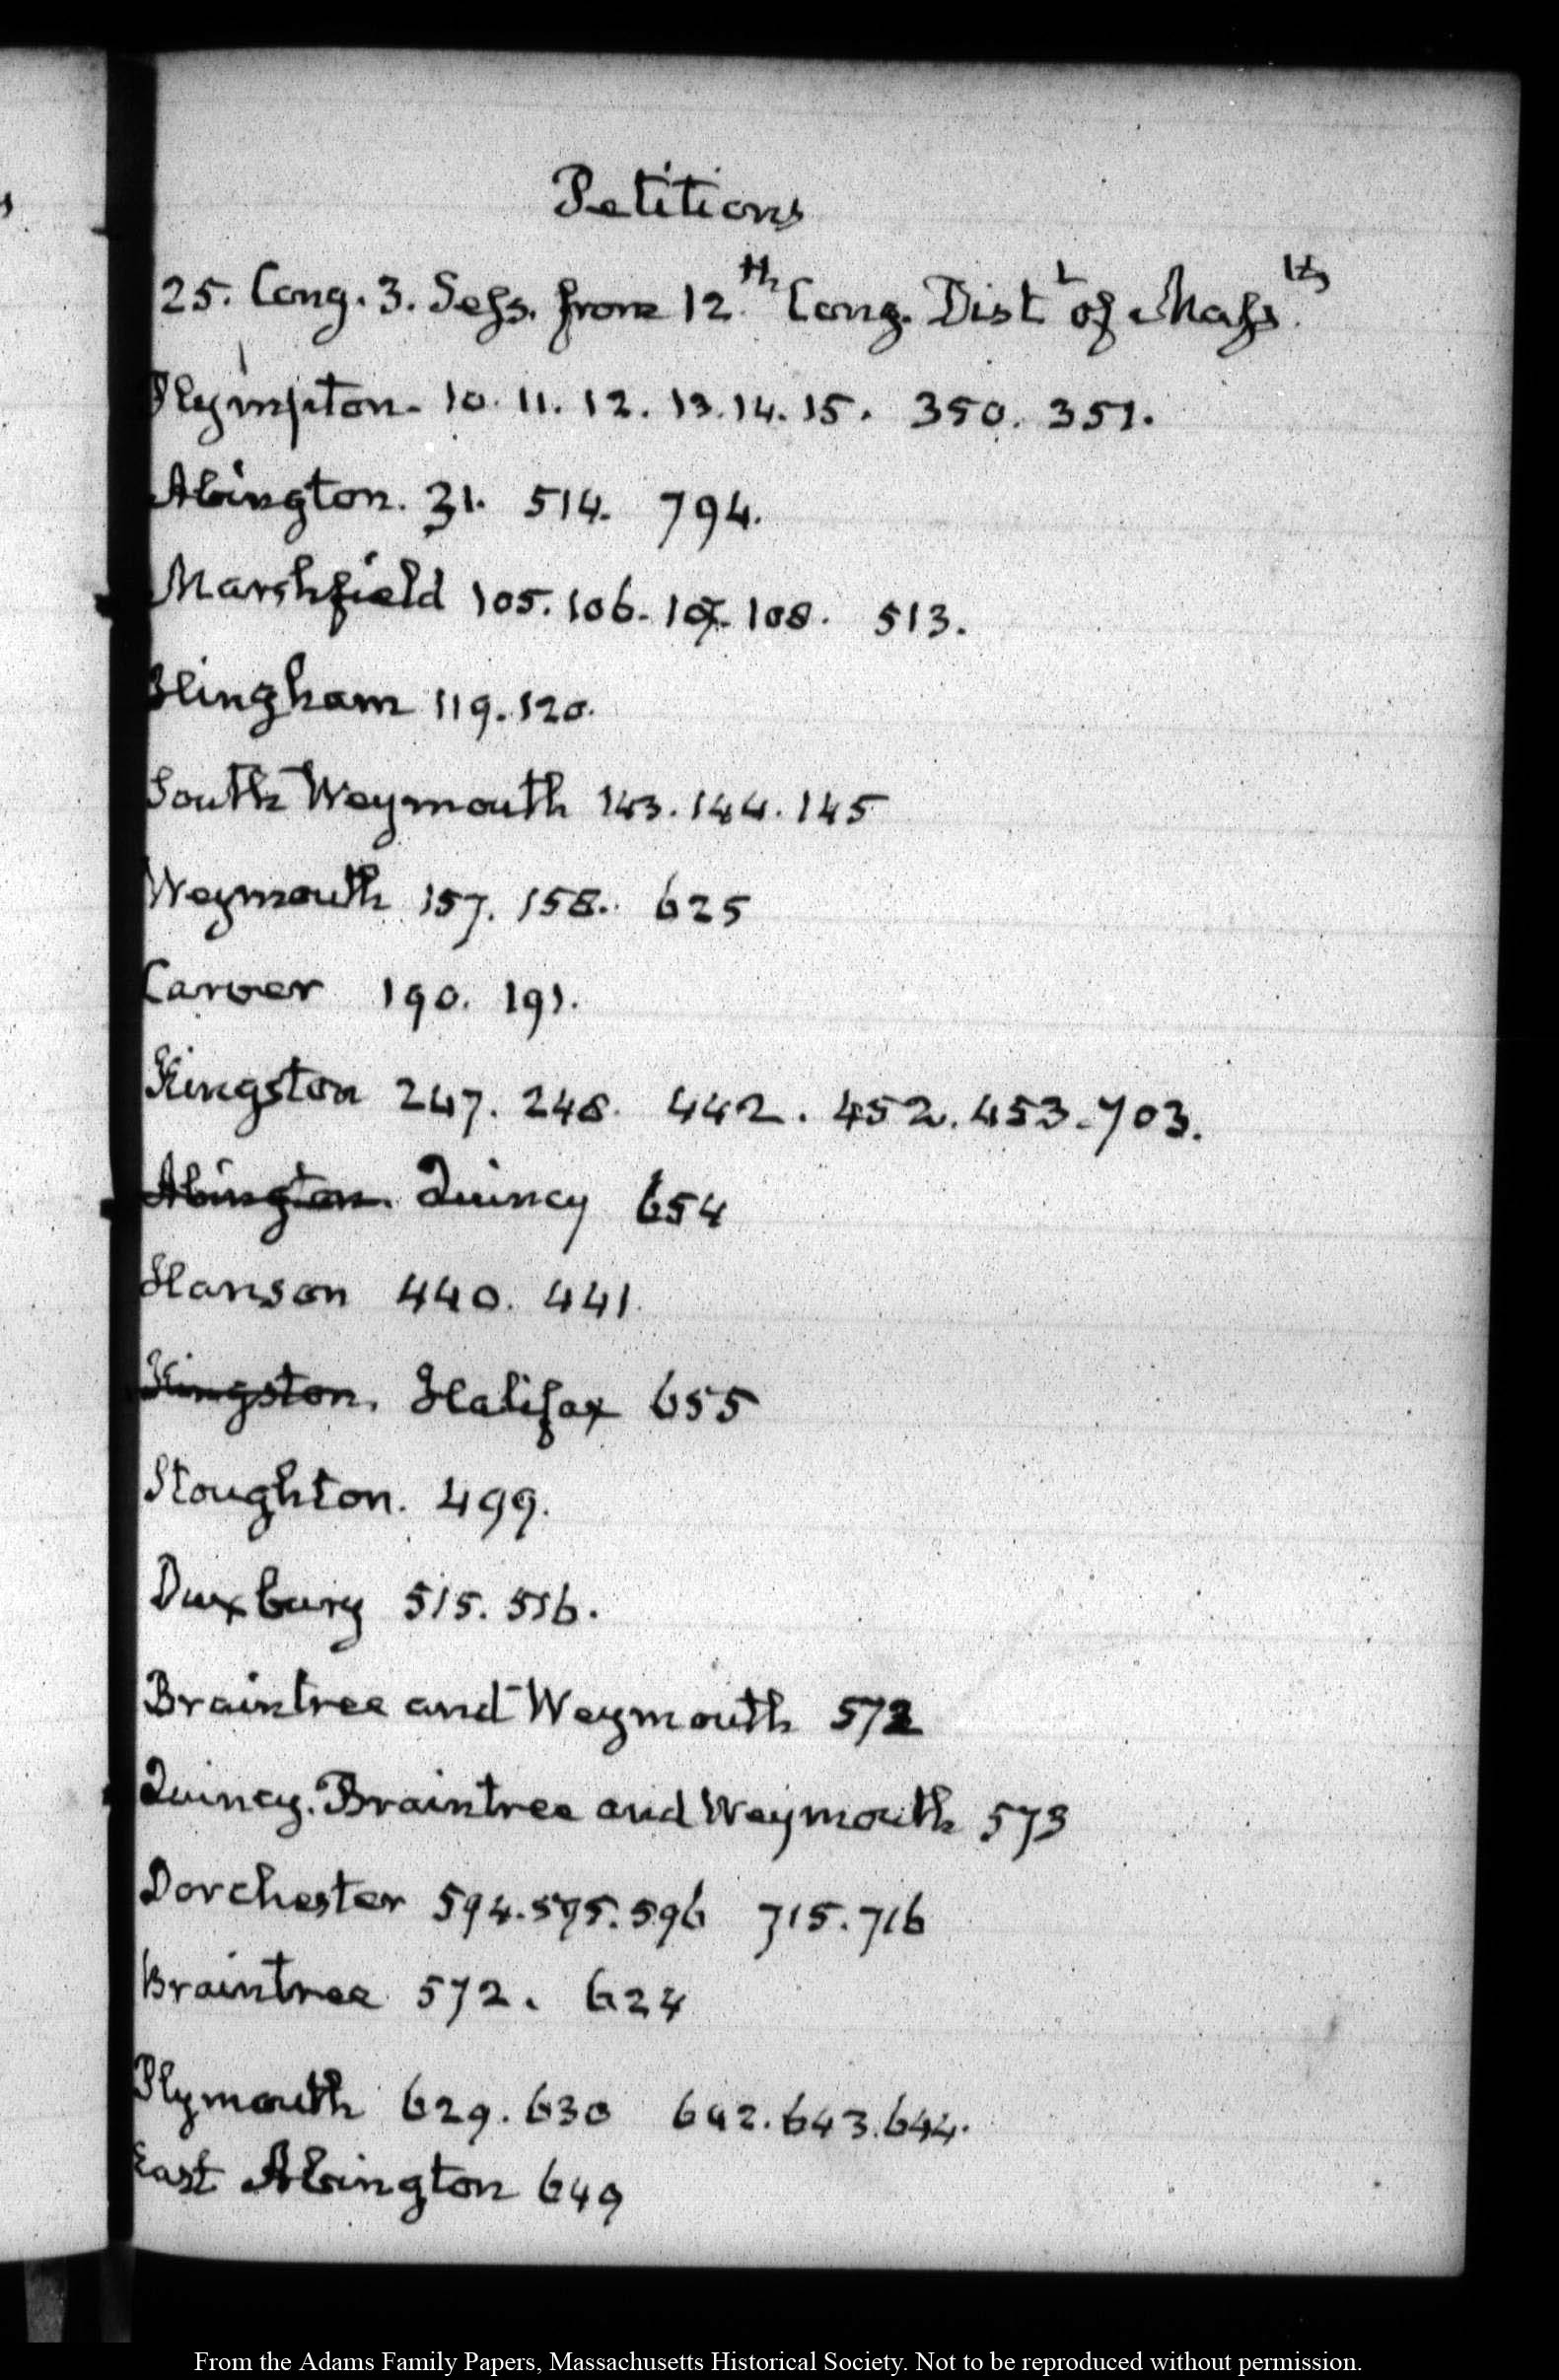 Petitions
25. Cong. 3. Sess. from 12.th Cong. Distt of Massts.
Plympton. 10. 11. 12. 13. 14. 15. 350. 351.
Abington. 31. 514. 794.
Marshfield 105. 106. 107. 108. 513.
Hingham 119. 120.
South Weymouth 143. 144. 145
Weymouth 157. 158. 625
Carver 190. 191.
Kingston 247. 248. 442. 452. 453. 703.
Abington. Quincy 654
Hanson 440. 441.
Kingston. Halifax 655
Stoughton. 499.
Duxbury 515. 516.
Braintree and Weymouth 572
Quincy. Braintree and Weymouth 573
Dorchester 594. 595. 596 715. 716
Braintree 572. 624
Plymouth 629. 630 642. 643. 644.
East Abington 649
From the Adams Family Papers, Massachusetts Historical Society. Not to be reproduced without permission.